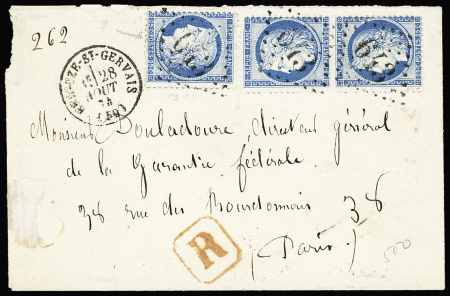 262
ST-GERVAIS
28
AOUT
(59)
Monsieur Douladoure, Directeur général
de la Garantie fédérale.
38 rue des Bourdonnais 38
(Paris)
R